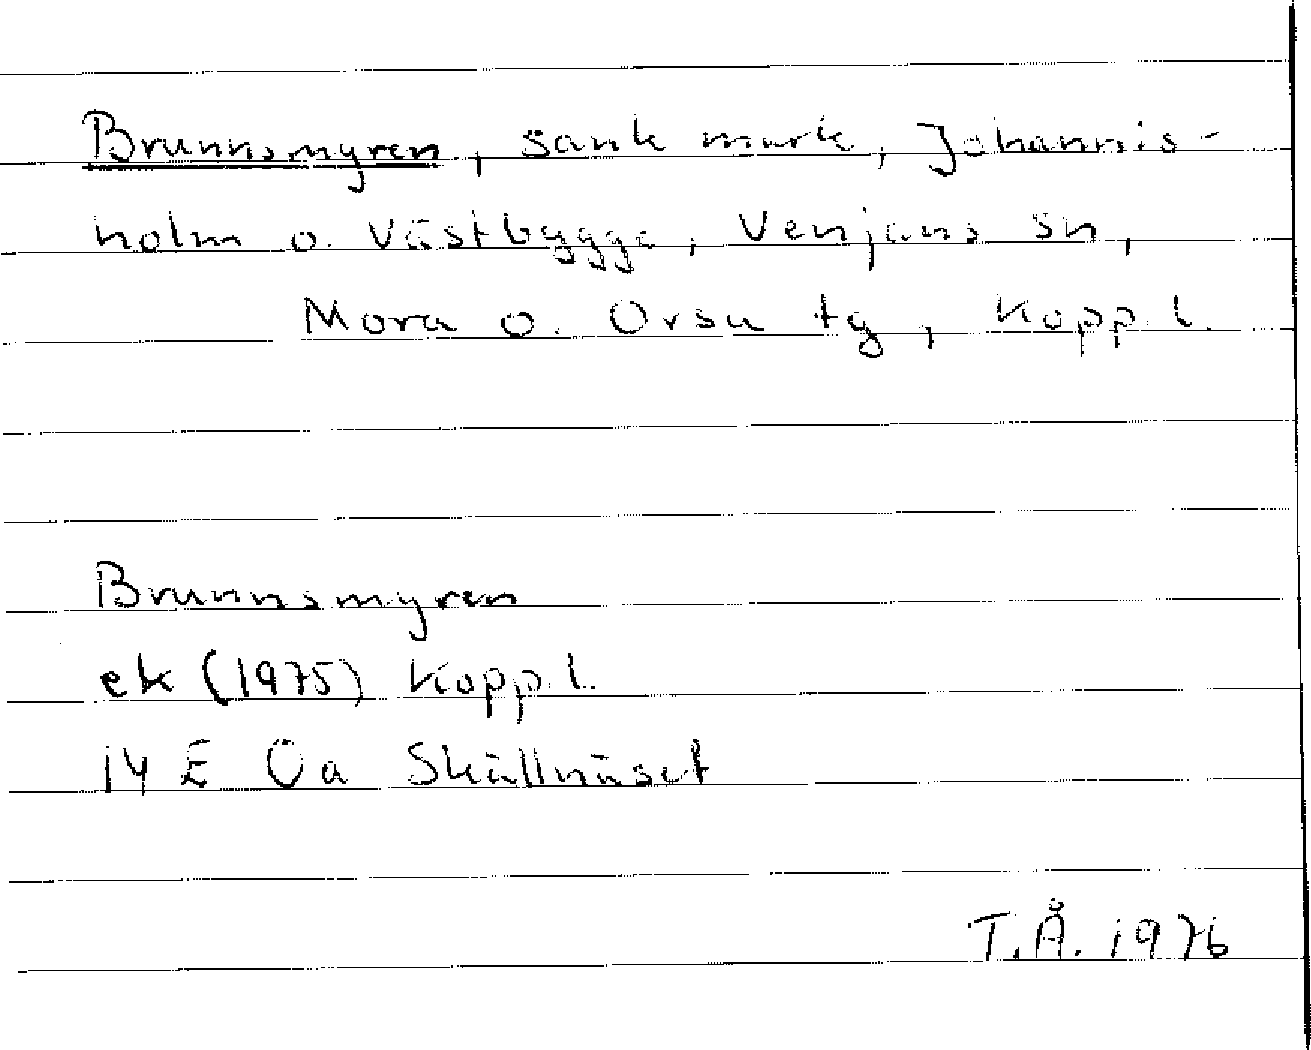 Brunnsmyren, sank mark, Johannis-
holm o. Västbygge, Venjans sn,
Mora o. Orsa tg, Kopp.l.
Brunnsmyren
ek (1975) Kopp.l.
14 E 0a Skällnäset
T.Å. 1976